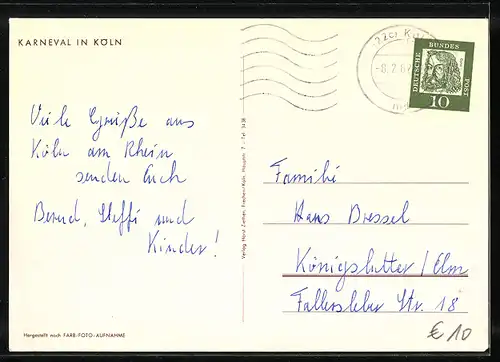 KARNEVAL IN KÖLN
Viele Grüße aus
Köln am Rhein
senden Euch
Bernd, Steffi und
Kinder!
Hergestellt nach FARB-FOTO-AUFNAHME
Verlag Horst Ziethen, Frechen/Köln,
22c
-8.2.62
DEUTSCHE
BUNDES
POST
10
Familie
Hans Dressel
Königslutter / Elm
Fallersleber Str. 18
€ 10